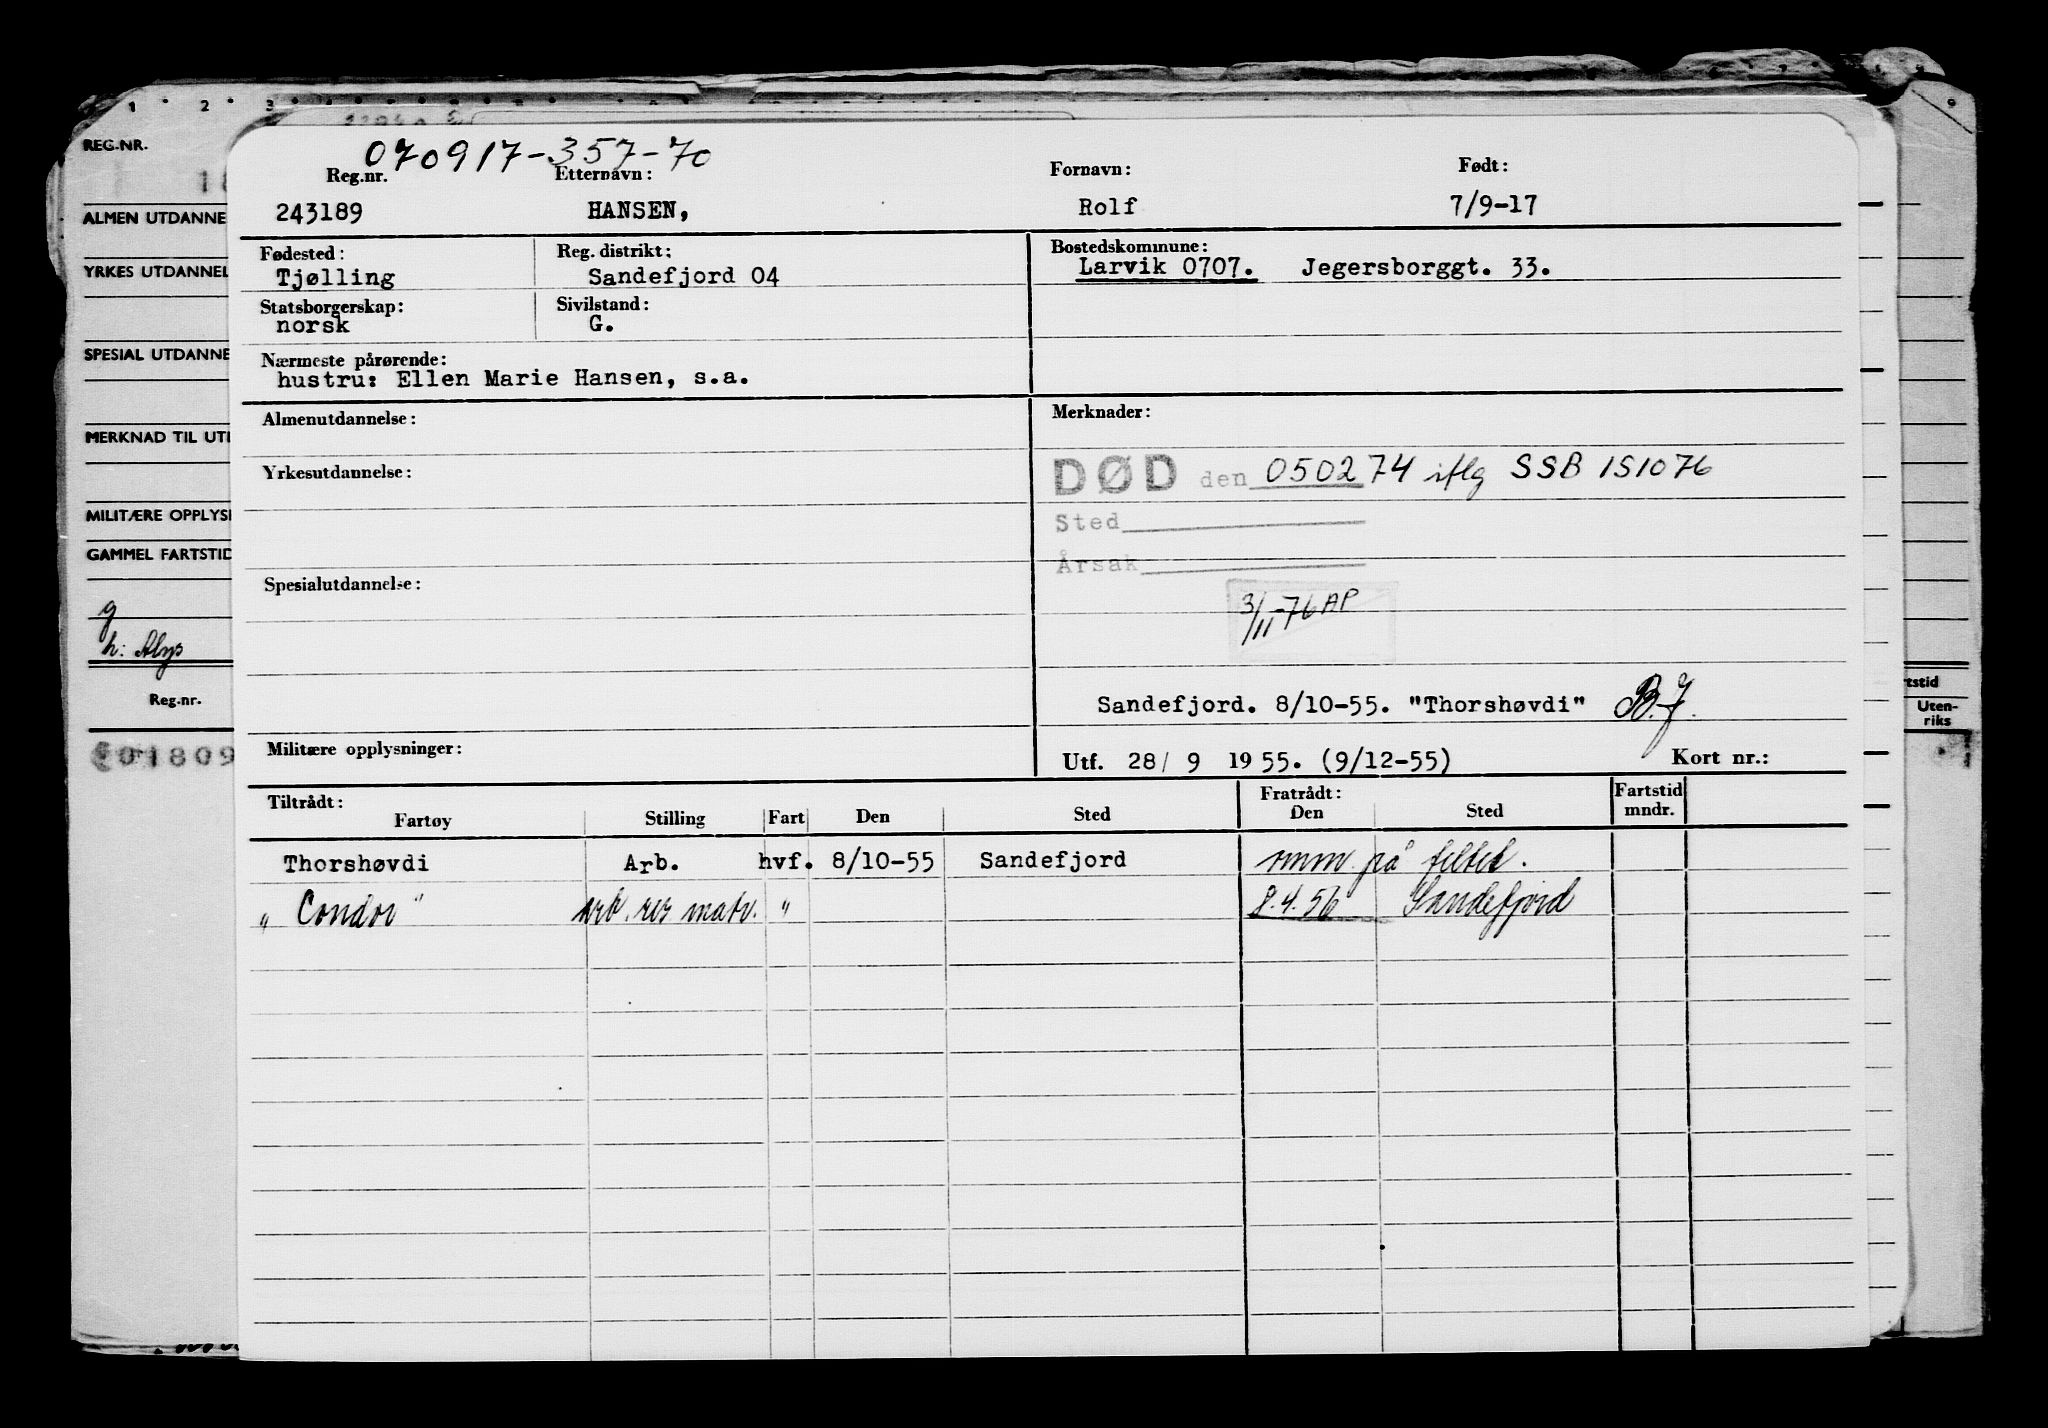 1 2 3
REG-NR.
ALMEN UTDANNE
YRKES UTDANNEL
SPESIAL UTDANNE
MERKNAD TIL UT
MILITÆRE OPPLYS
GAMMEL FARTSTID
g
h: Alys
Reg.nr.
01809
070917-357-70
Reg.nr. Etternavn: Fornavn: Født:
243189 HANSEN, Rolf 7/9-17
Fødested: Reg. distrikt: Bostedskommune:
Tjølling Sandefjord 04 Larvik 0707. Jegersborggt. 33.
Statsborgerskap: Sivilstand:
norsk G.
Nærmeste pårørende:
hustru: Ellen Marie Hansen, s.a.
Almenutdannelse: Merknader:
Yrkesutdannelse: DØD den 050274 iflg SSB 151076
Sted
Årsak
Spesialutdannelse:
3/11-76 AP
Sandefjord. 8/10-55. "Thorshøvdi" B.J.
Militære opplysninger: Utf. 28/ 9 1955. (9/12-55) Kort nr.:
Tiltrådt: Fratrådt: Fartstid
Fartøy Stilling Fart Den Sted Den Sted mndr.
Thorshøvdi Arb. hvf. 8/10-55 Sandefjord mm på feltet.
"Condor" arb. res matr. " 8.4.56 Sandefjord
rtstid
Uten-
riks